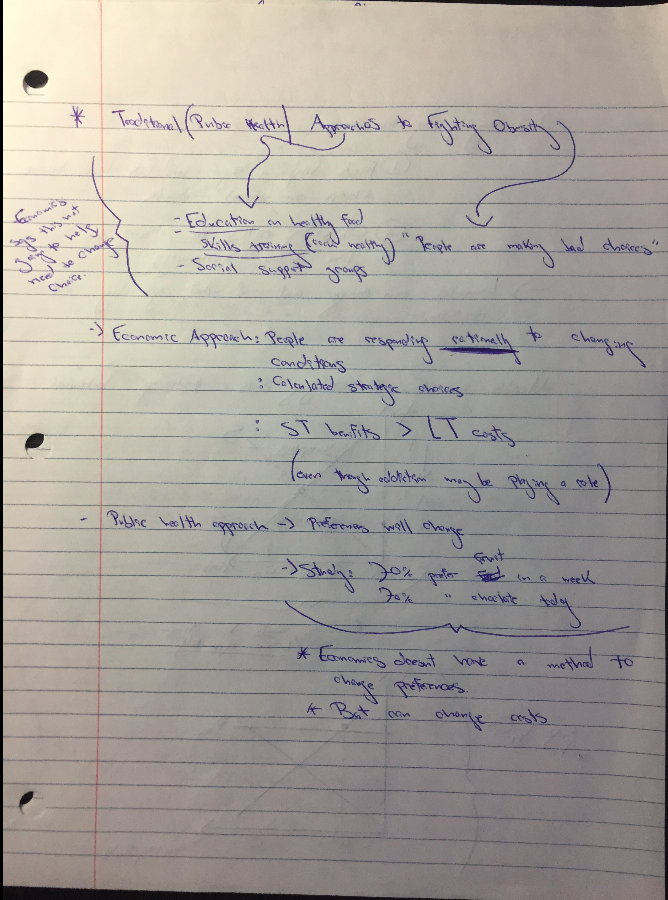 * Traditional (Public Health) Approaches to Fighting Obesity
- Education on healthy food
Skills training (cook healthy) "People are making bad choices"
- Social support groups
Economics
says this not
going to help
need to change
choice.
-> Economic Approach: People are responding rationally to changing
conditions
: Calculated strategic choices
: ST benifits > LT costs
(even though addiction may be playing a role)
- Public health approach -> Preferences will change
-> Study: 70% prefer fruit in a week
70% " choclate tday
* Economics doesnt have a method to
change preferences.
* But can change costs